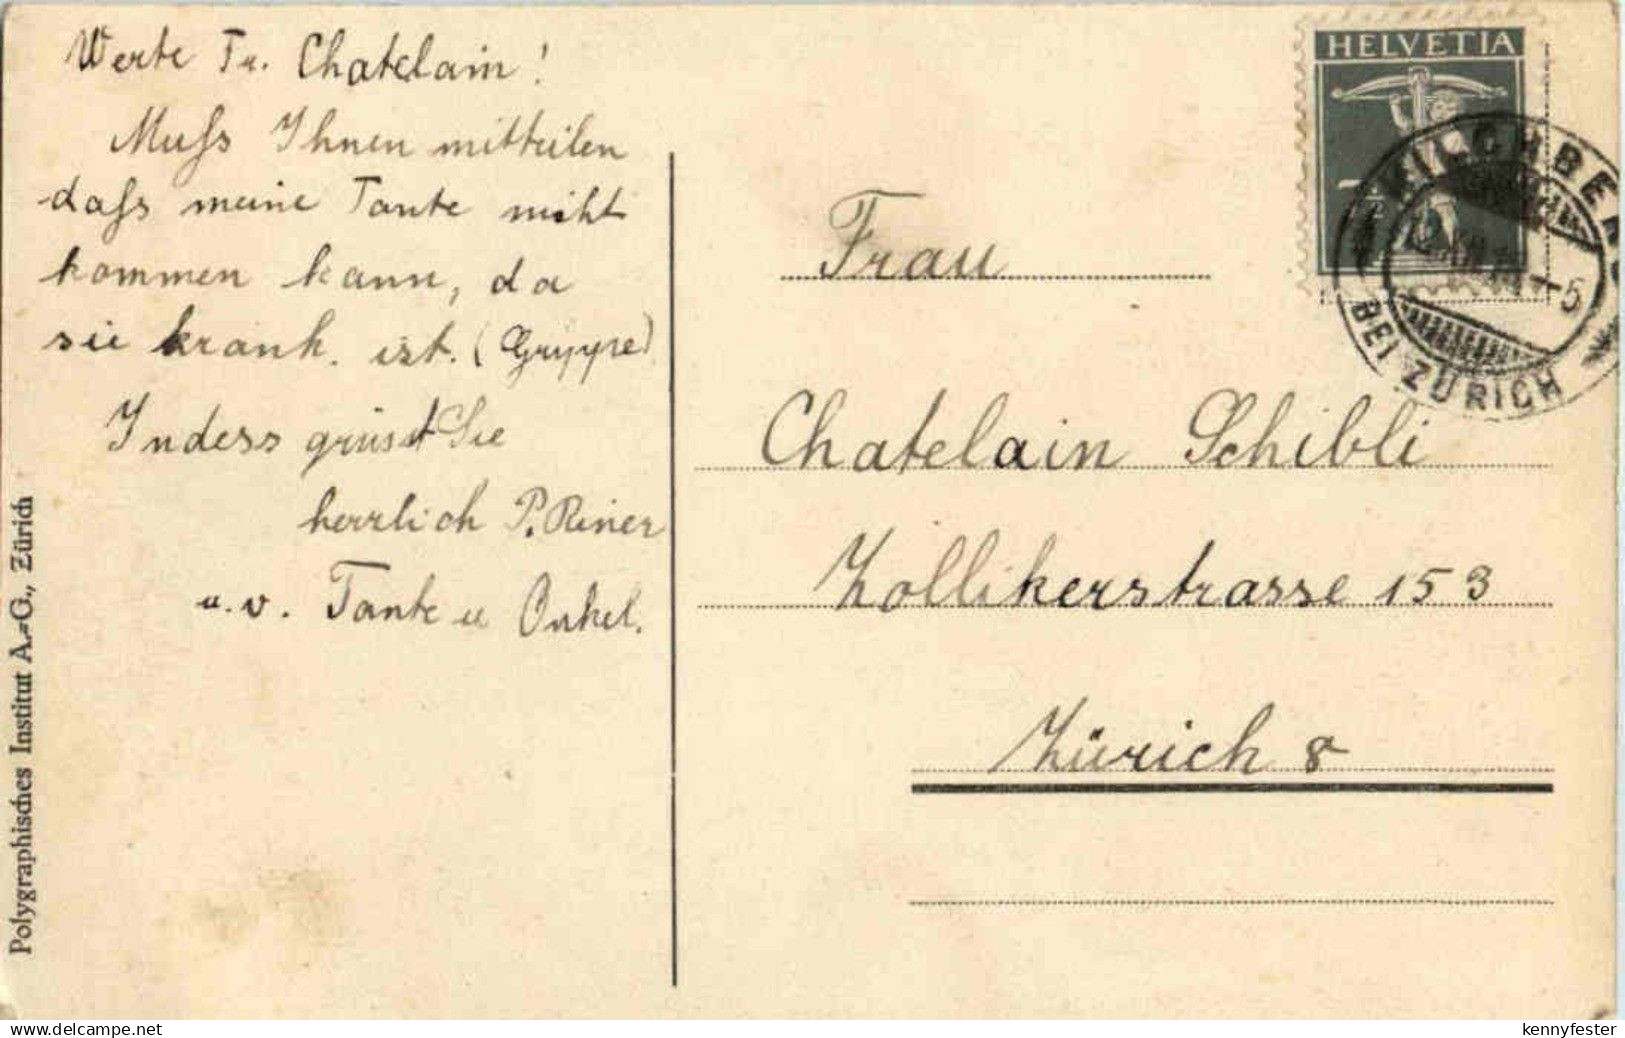 Werte Fr. Chatelain!
Muss Ihnen mitteilen
dass meine Tante nicht
kommen kann, da
sie krank. ist. (Gryppe)
Indess grüsst Sie
herzlich P. Riner
u. v. Tante u Onkel.
Polygraphisches Institut A.-G., Zürich
HELVETIA
7½
KILCHBERG
12. XII. –5
BEI ZÜRICH
Frau
Chatelain Schibli
Zollikerstrasse 153
Zürich 8
delcampe.net
kennyfester